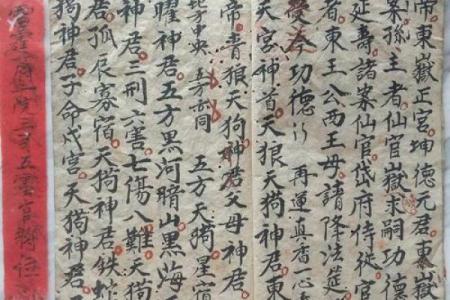 帝東嶽正宮坤德元君東嶽
案孫主者仙官嶽求嗣功德
延壽諸案仙官岱府侍從官
者東王公西王母請降法筵
受奉功德 再運真香一心
天宮神首天狼天狗神君東
帝青狼天狗神君父母神君
北方中央 五方亦同 五方天狗星宿
曜神君五方黑河暗山黑海
神君三刑六害七傷八難天狗
君孤辰寡宿天狗神君鉄蛇
狗神君子命戊宮天狗神君
五雲宮